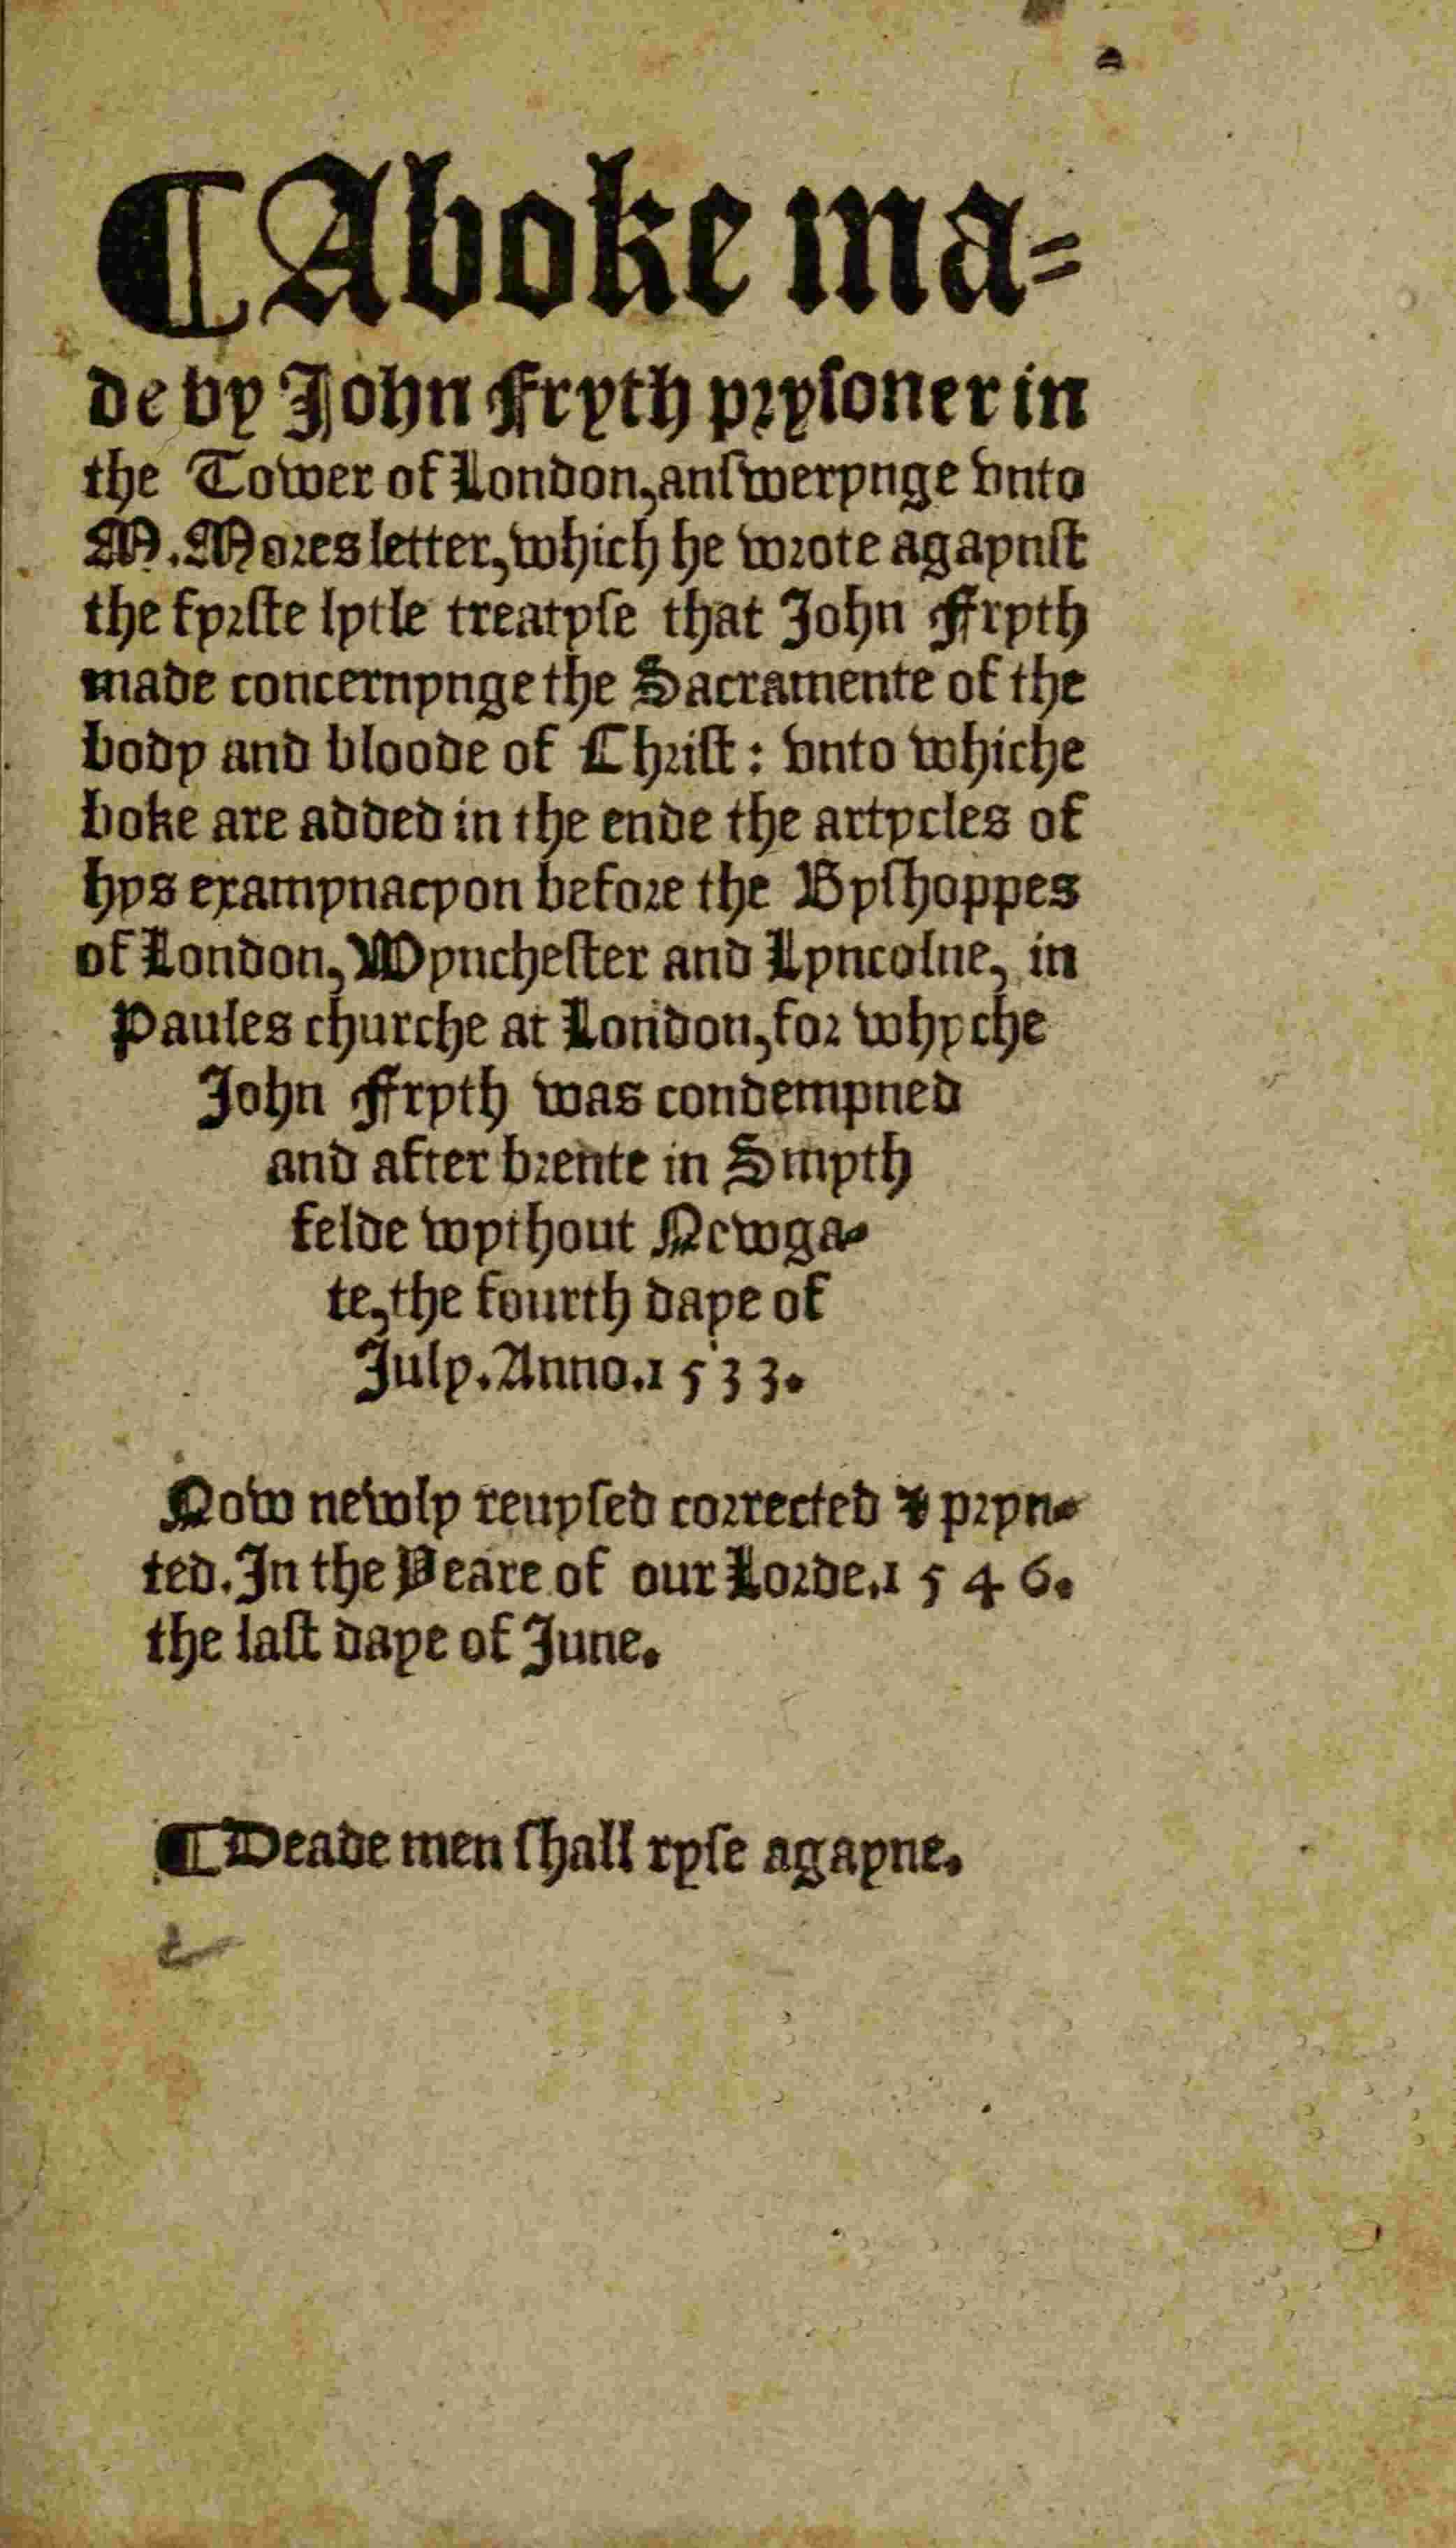 ¶ A boke ma=
de by John Fryth prysoner in
the Tower of London, answerynge vnto
M. Mores letter, which he wrote agaynst
the fyrste lytle treatyse that John Fryth
made concernynge the Sacramente of the
body and bloode of Christ : vnto whiche
boke are added in the ende the artycles of
hys examynacyon before the Byshoppes
of London, Wynchester and Lyncolne, in
Paules churche at London, for whyche
John Fryth was condempned
and after brente in Smyth
felde wythout Newga-
te, the fourth daye of
July. Anno. 1533.
Now newly reuysed corrected & pryn-
ted. In the Yeare of our Lorde. 1546.
the last daye of June.
¶ Deade men shall ryse agayne.